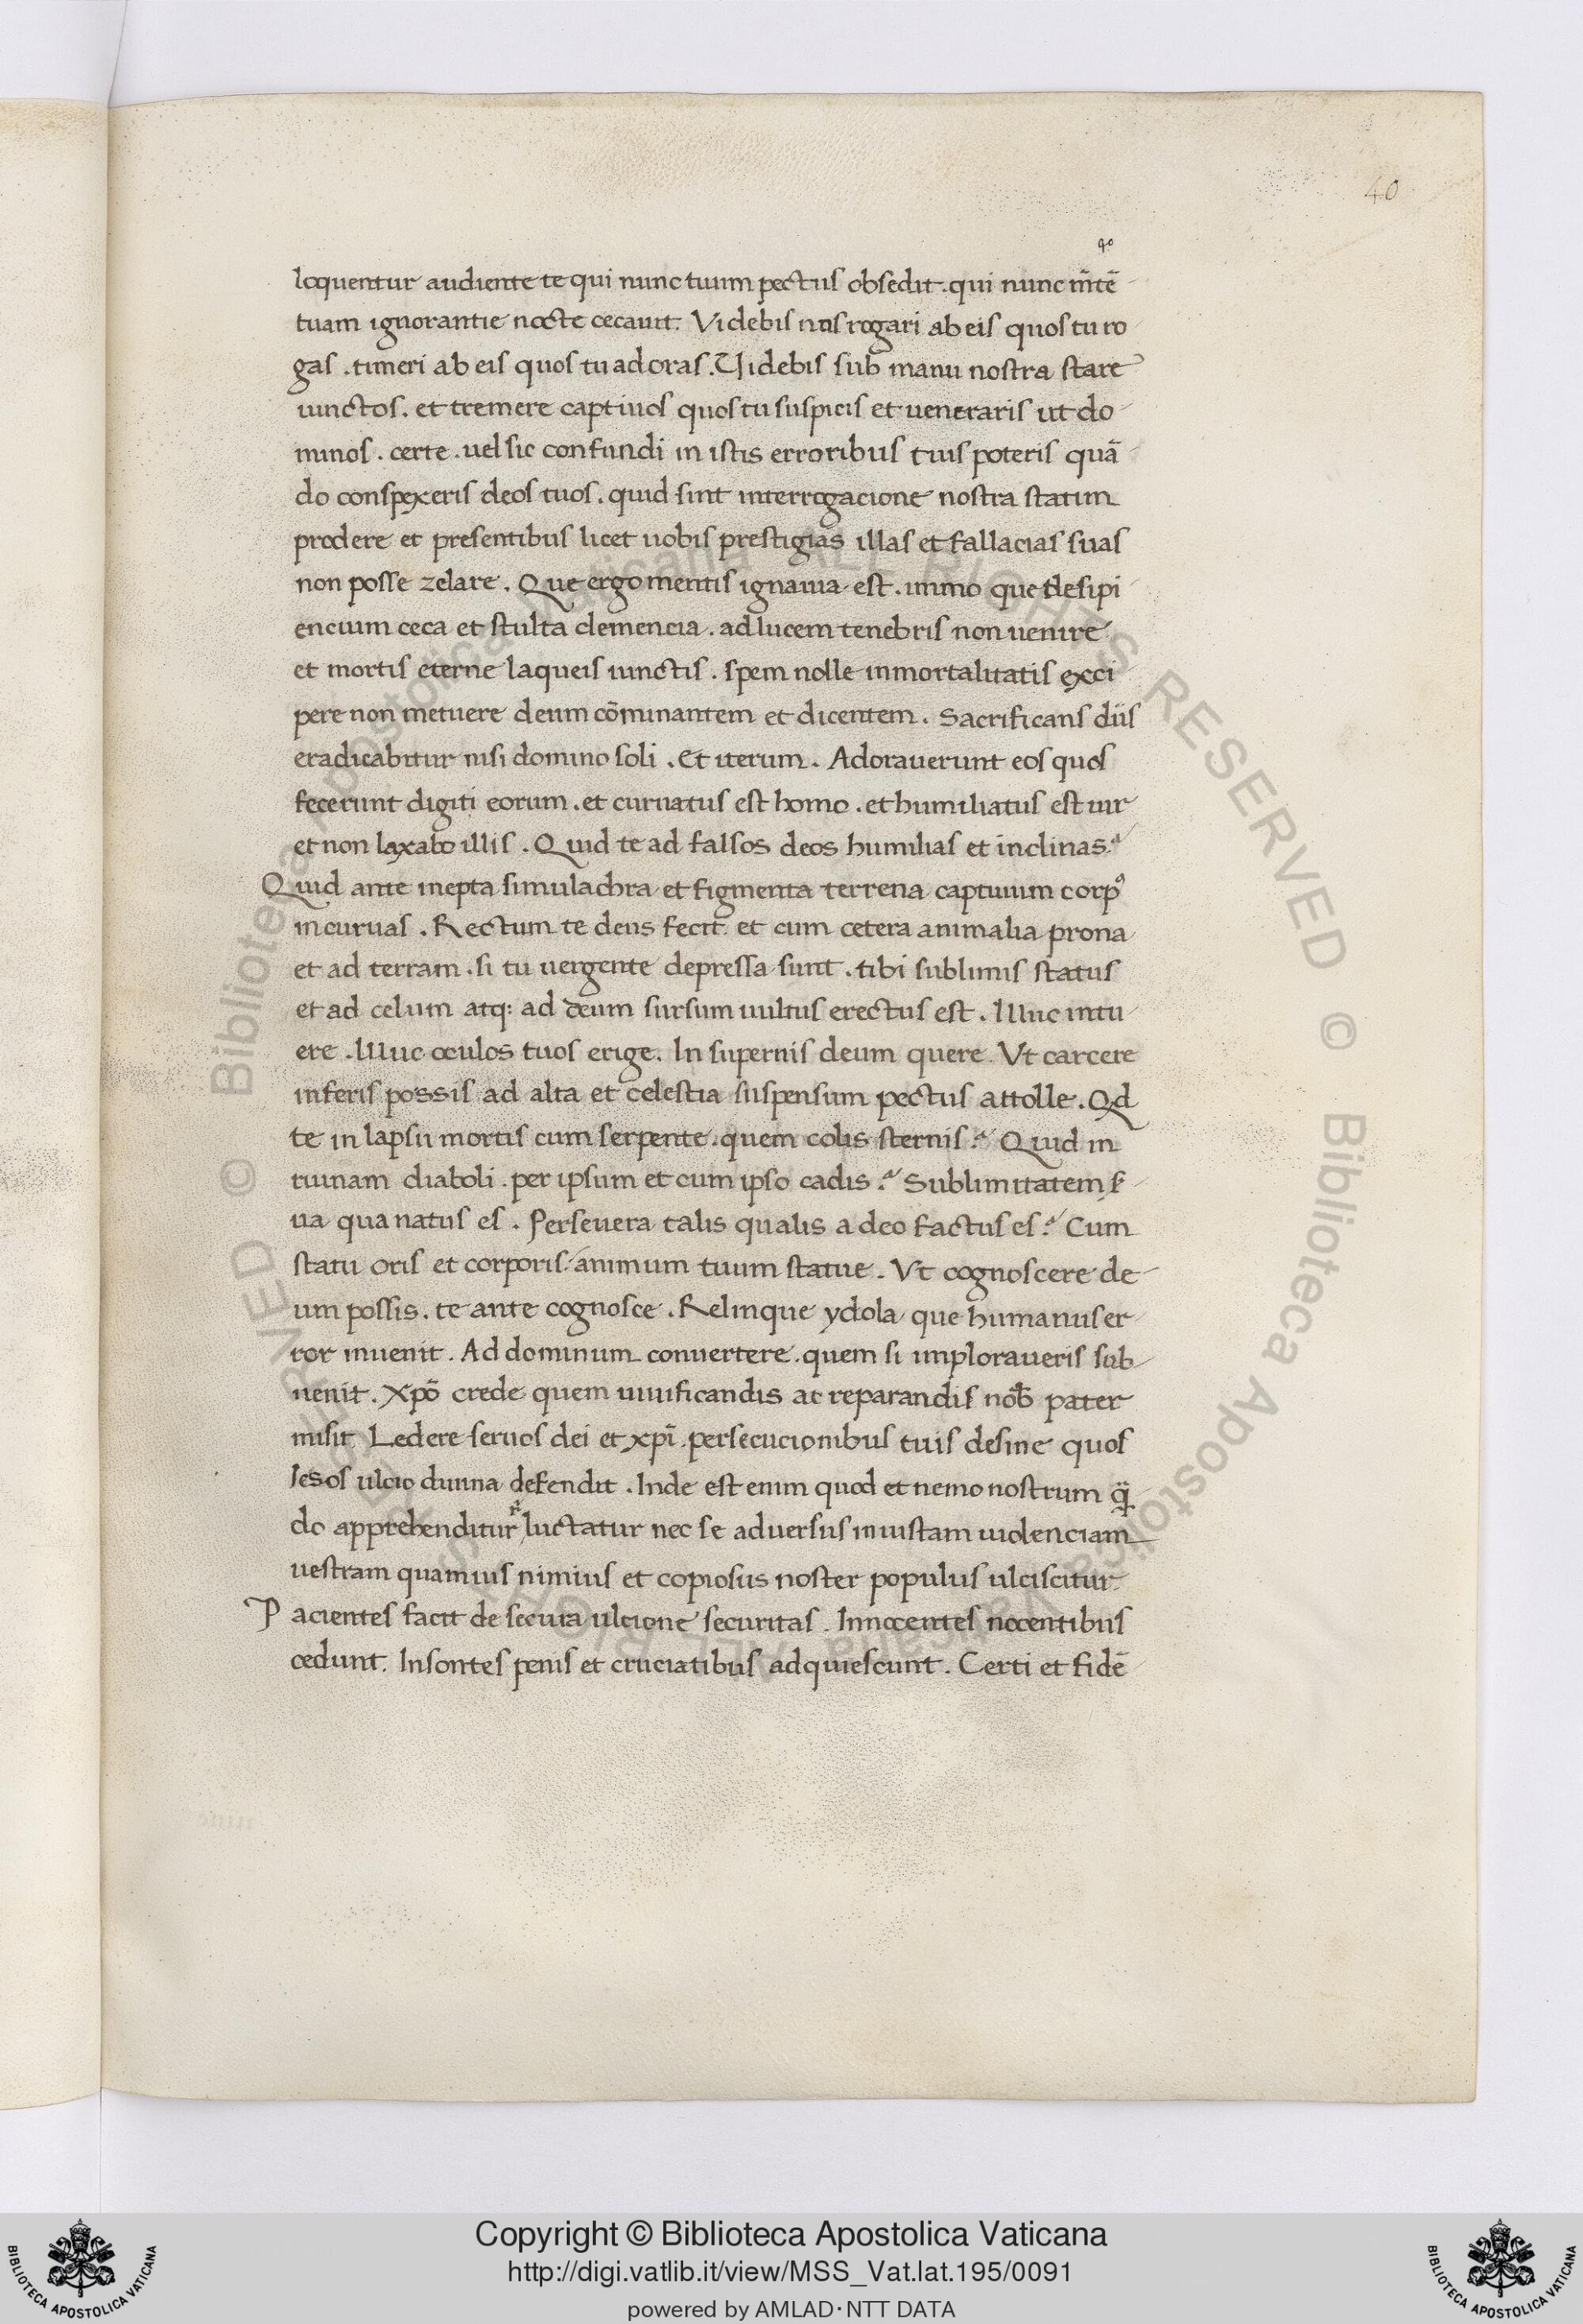 40
40
loquentur audiente te qui nunc tuum pectus obsedit. qui nunc m̄tē
tuam ignorantie nocte cecauit. Videbis nos rogari ab eis quos tu ro
gas. timeri ab eis quos tu adoras. Uidebis sub manu nostra stare
uinctos. et tremere captiuos quos tu suspicis et ueneraris ut do
minos. certe. uel sic confundi in istis erroribus tuis poteris quā
do conspexeris deos tuos. quid sint interrogacione nostra statim
prodere et presentibus licet uobis prestigias illas et fallacias suas
non posse zelare. Que ergo mentis ignauia est. immo que desipi
encium ceca et stulta clemencia. ad lucem tenebris non uenire
et mortis eterne laqueis uinctis. spem nolle inmortalitatis exci
pere non metuere deum cōminantem et dicentem. Sacrificans diis
eradicabitur nisi domino soli. Et iterum. Adorauerunt eos quos
fecerunt digiti eorum. et curuatus est homo. et humiliatus est uir
et non laxabo illis. Quid te ad falsos deos humilias et inclinas?
Quid ante inepta simulachra et figmenta terrena captiuum corpꝰ
incuruas. Rectum te deus fecit. et cum cetera animalia prona
et ad terram. si tu uergente depressa sunt. tibi sublimis status
et ad celum atq: ad deum sursum uultus erectus est. Illuc intu
ere. Illuc oculos tuos erige. In supernis deum quere. Vt carcere
inferis possis ad alta et celestia suspensum pectus attolle. Qd
te in lapsu mortis cum serpente. quem colis sternis? Quid in
ruinam diaboli. per ipsum et cum ipso cadis? Sublimitatem ẜ
ua qua natus es. Perseuera talis qualis a deo factus es? Cum
statu oris et corporis. animum tuum statue. Vt cognoscere de
um possis. te ante cognosce. Relinque ydola que humanus er
ror inuenit. Ad dominum conuertere. quem si imploraueris sub
uenit. Xpō crede quem uiuificandis ac reparandis nob̄ pater
misit. Ledere seruos dei et xpī. persecucionibus tuis desine quos
lesos ulcio diuina defendit. Inde est enim quod et nemo nostrum
do apprehenditur luctatur nec se aduersus iniustam uiolenciam
uestram quamuis nimius et copiosus noster populus ulciscitur.
Pacientes facit de secuia ulcione securitas. Innocentes nocentibus
cedunt. Insontes penis et cruciatibus adquiescunt. Certi et fidē
© Biblioteca Apostolica Vaticana ALL RIGHTS RESERVED © Biblioteca Apostolica Vaticana ALL RIGHTS RESERVED
Copyright © Biblioteca Apostolica Vaticana
http://digi.vatlib.it/view/MSS_Vat.lat.195/0091
powered by AMLAD·NTT DATA
BIBLIOTECA APOSTOLICA VATICANA
BIBLIOTECA APOSTOLICA VATICANA